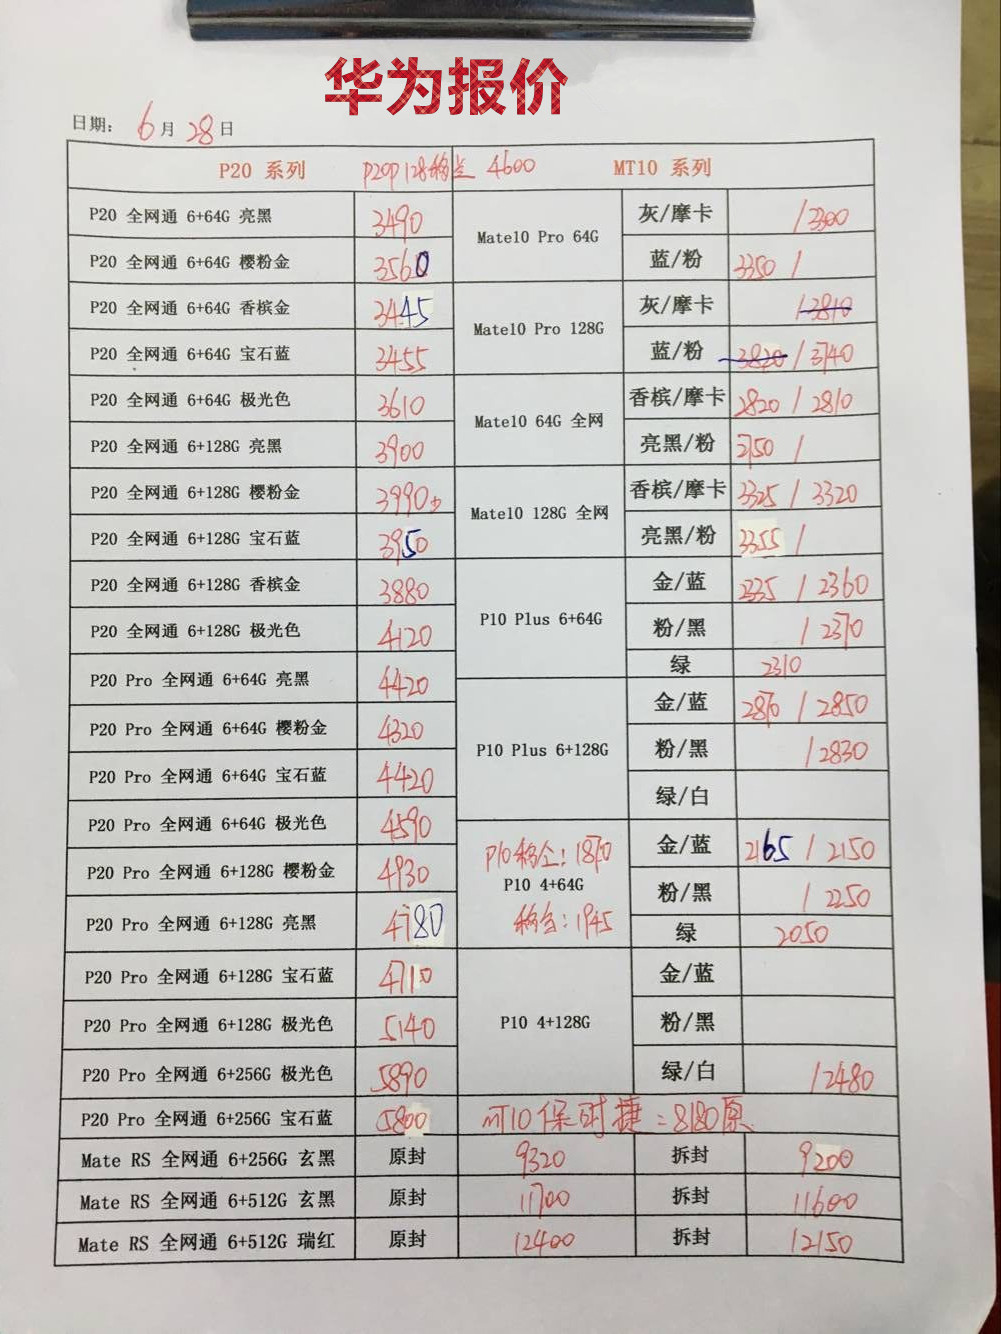 华为报价
日期: 6月28日
P20 系列 P20P 128移 4600 MT10 系列
P20 全网通 6+64G 亮黑 3490
P20 全网通 6+64G 樱粉金 3560
P20 全网通 6+64G 香槟金 3445
P20 全网通 6+64G 宝石蓝 3455
P20 全网通 6+64G 极光色 3610
P20 全网通 6+128G 亮黑 3900
P20 全网通 6+128G 樱粉金 3990
P20 全网通 6+128G 宝石蓝 3950
P20 全网通 6+128G 香槟金 3880
P20 全网通 6+128G 极光色 4120
P20 Pro 全网通 6+64G 亮黑 4420
P20 Pro 全网通 6+64G 樱粉金 4320
P20 Pro 全网通 6+64G 宝石蓝 4420
P20 Pro 全网通 6+64G 极光色 4590
P20 Pro 全网通 6+128G 樱粉金 4930
P20 Pro 全网通 6+128G 亮黑 4780
P20 Pro 全网通 6+128G 宝石蓝 4710
P20 Pro 全网通 6+128G 极光色 5140
P20 Pro 全网通 6+256G 极光色 5890
P20 Pro 全网通 6+256G 宝石蓝 5800
Mate10 Pro 64G
灰/摩卡 / 3300
蓝/粉 3350 /
Mate10 Pro 128G
灰/摩卡 / 3810
蓝/粉 3820 / 3740
Mate10 64G 全网
香槟/摩卡 2820 / 2810
亮黑/粉 2750 /
Mate10 128G 全网
香槟/摩卡 3325 / 3320
亮黑/粉 3355 /
P10 Plus 6+64G
金/蓝 2335 / 2360
粉/黑 / 2370
绿 2310
P10 Plus 6+128G
金/蓝 2870 / 2850
粉/黑 / 2830
绿/白
P10移全: 1870
P10 4+64G
: 1945
金/蓝 2165 / 2150
粉/黑 / 2250
绿 2050
P10 4+128G
金/蓝
粉/黑
绿/白 / 2480
MT10保时捷: 8180原
Mate RS 全网通 6+256G 玄黑 原封 9320 拆封 9200
Mate RS 全网通 6+512G 玄黑 原封 11700 拆封 11600
Mate RS 全网通 6+512G 瑞红 原封 12400 拆封 12150